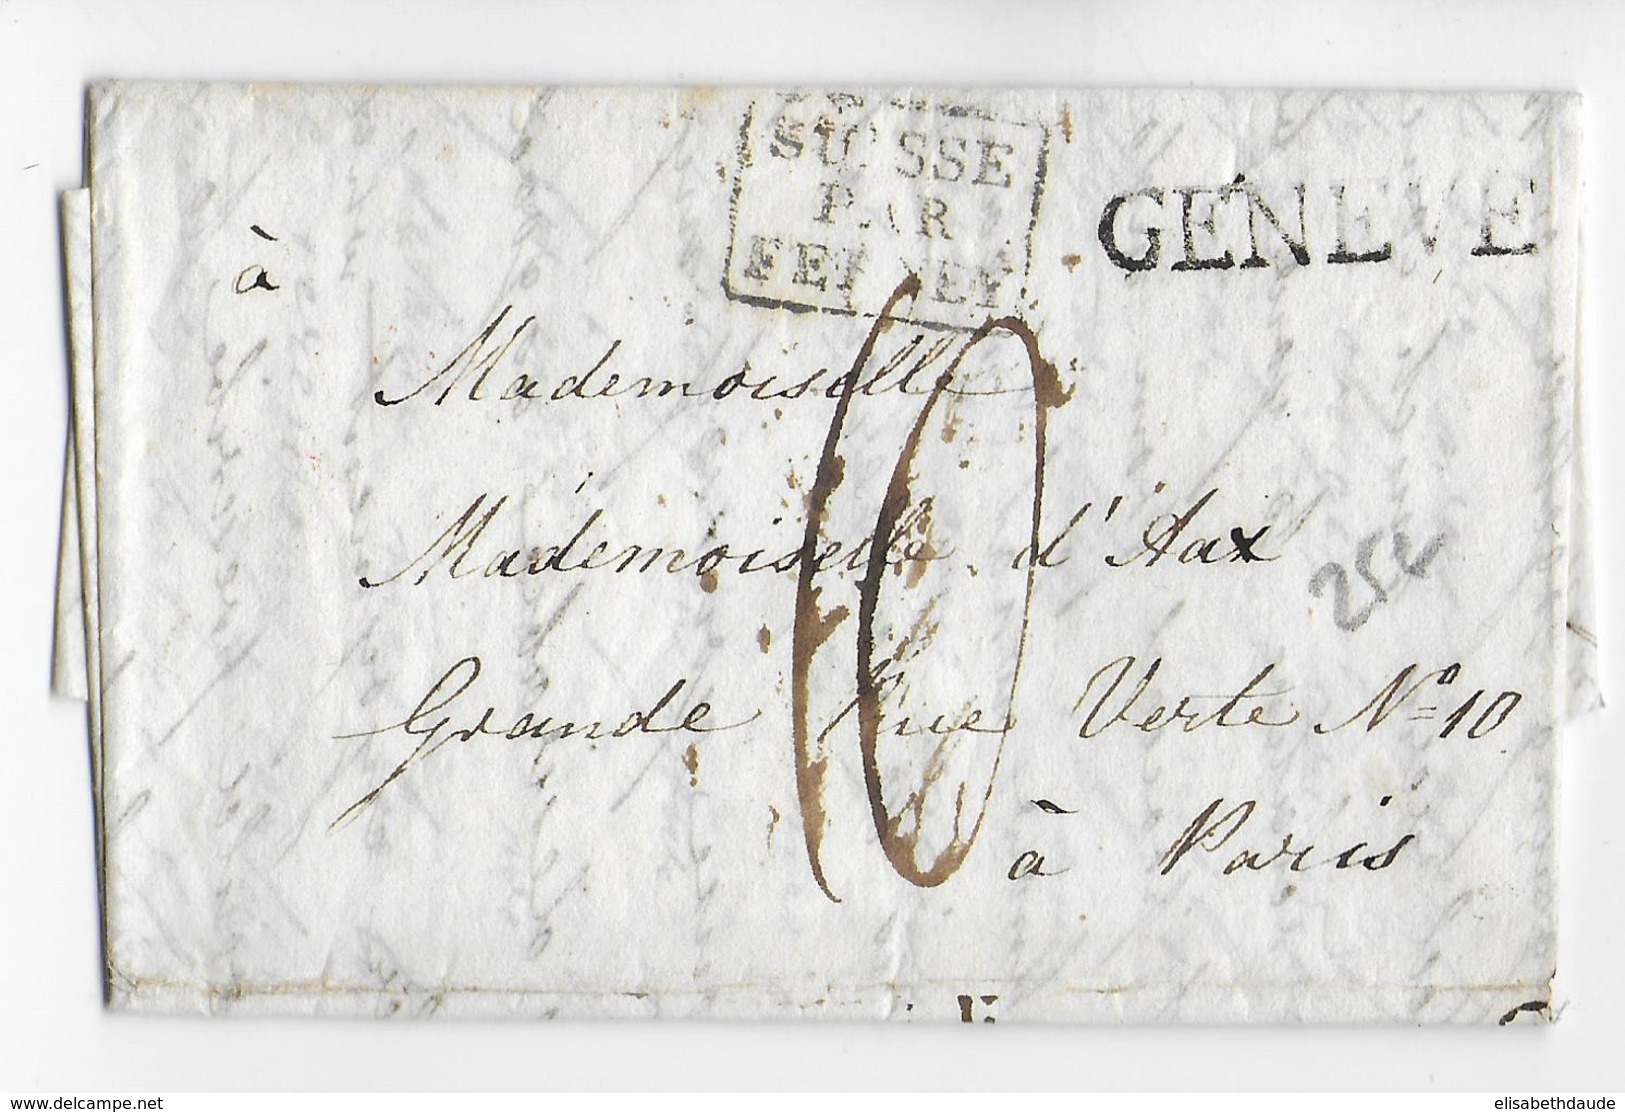 SUISSE
PAR
FERNEY
GENEVE
à
Mademoiselle
Mademoiselle d'Aax
Grande Rue Verte Nº 10
à Paris
10
www.delcampe.net
elisabethdaude